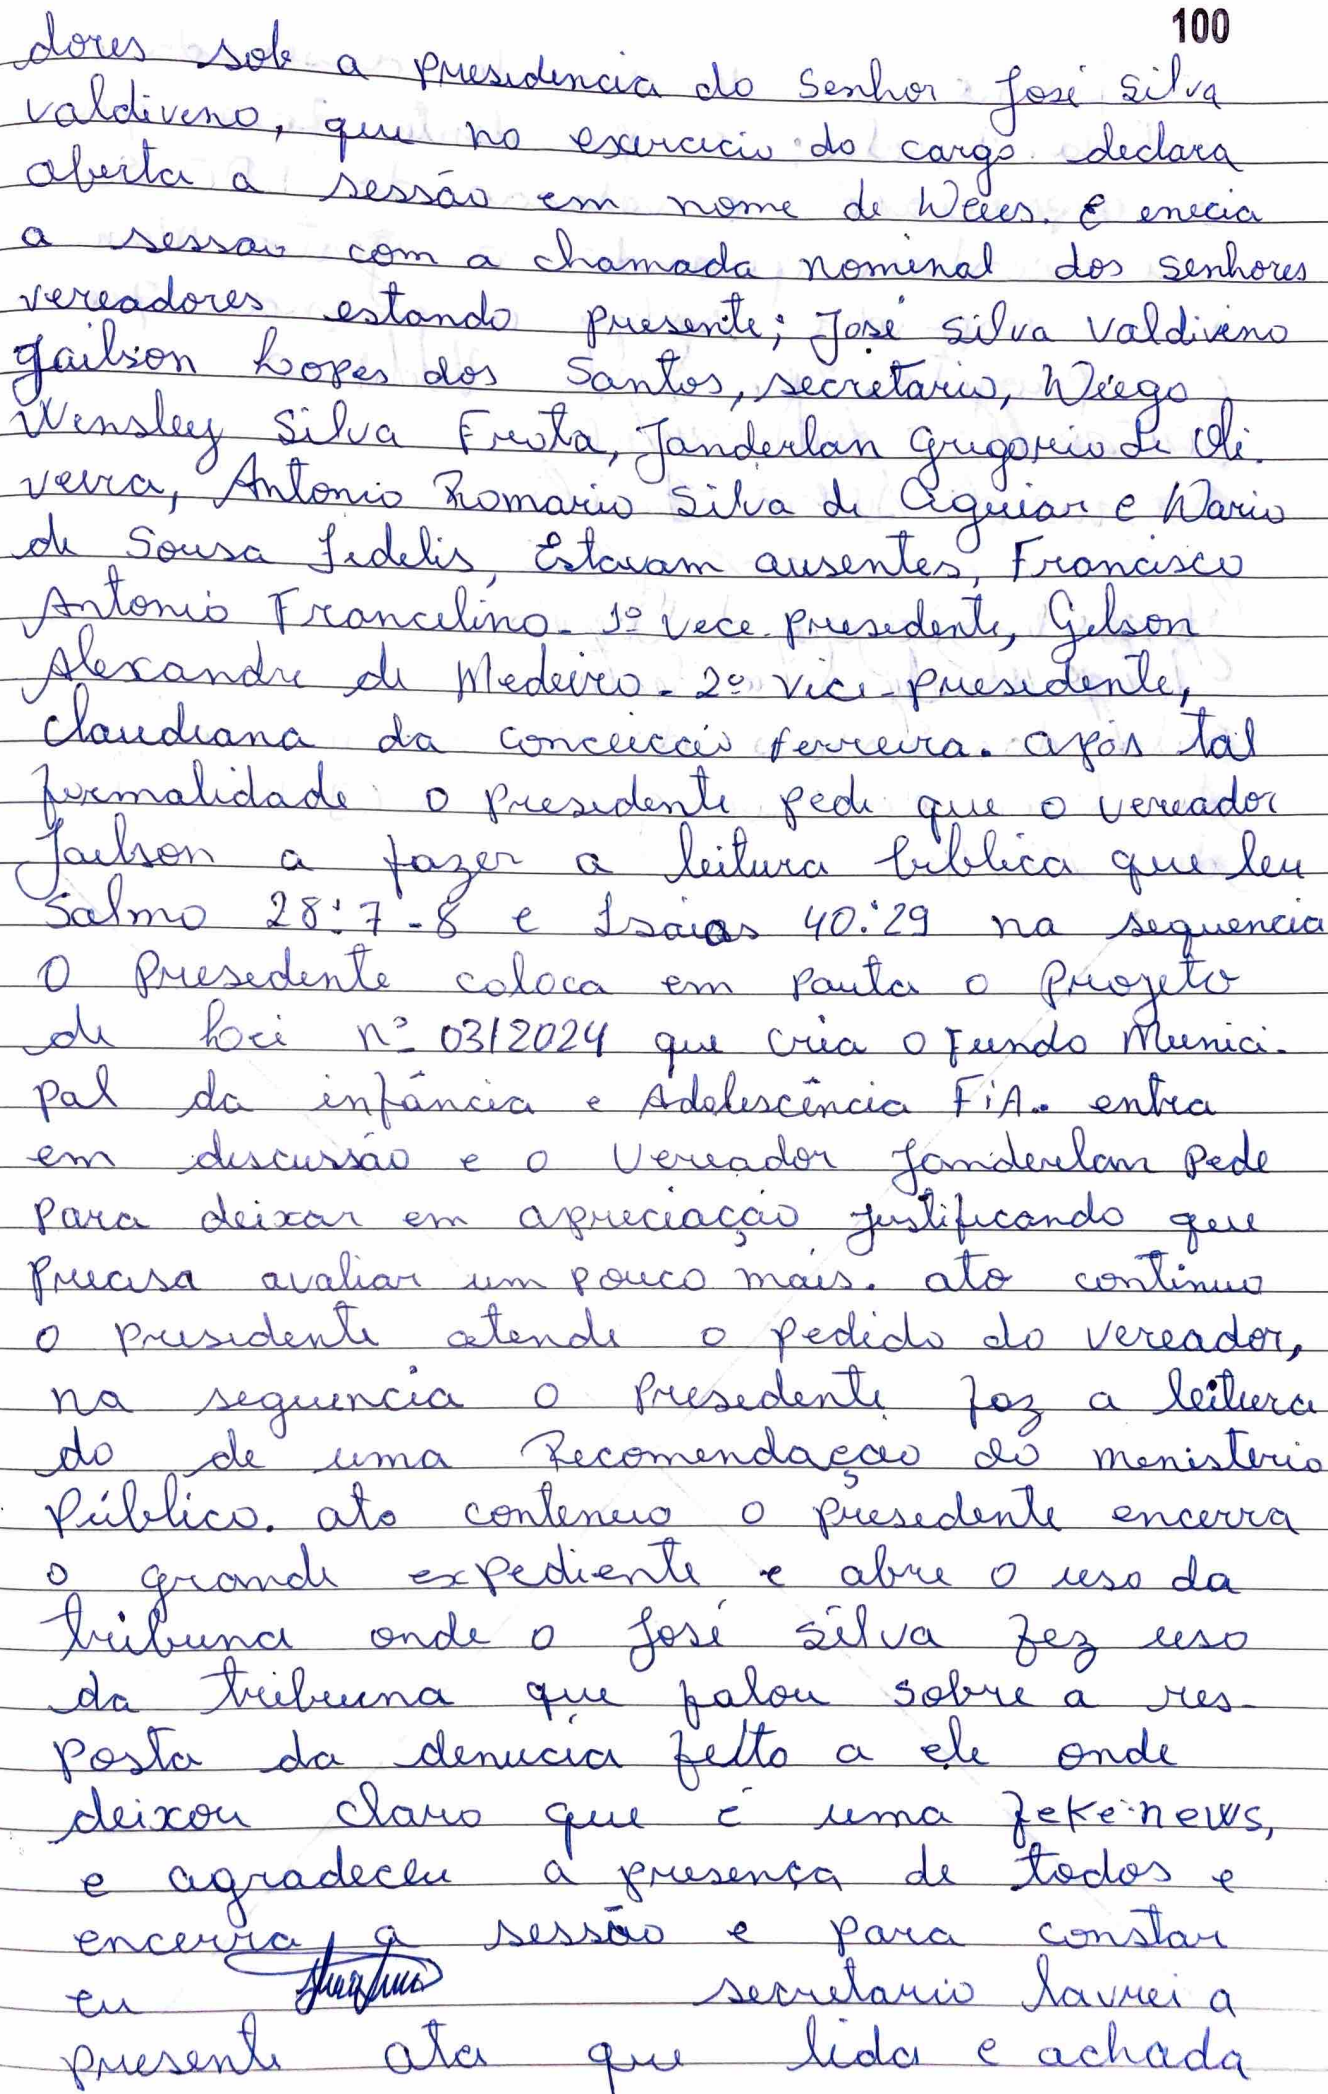 100
dores sob a presidencia do Senhor José Silva
valdiveno, que no exercicio do cargo declara
aberta a sessão em nome de Deus. E enecia
a sessao com a chamada nominal dos senhores
vereadores estando presente; José Silva Valdiveno
Jailson Lopes dos Santos, secretario, Diego
Wensley Silva Frota, Janderlan Grigorio de Oli-
veira, Antonio Romario Silva de Aguiar e Dario
de Sousa Fidelis, Estavam ausentes, Francisco
Antonio Francelino - 1º vece-presedente, Gelson
Alexandre de Medeiro - 2º vice-presedente,
Claudiana da conceicão ferreira. após tal
formalidade o presedente pede que o vereador
Jailson a fazer a leitura biblica que leu
Salmo 28:7-8 e Isaias 40:29 na sequencia
O Presedente coloca em pauta o Projeto
de Lei nº 03/2024 que cria o Fundo Munici-
pal da infância e Adolescência FiA. entra
em discussão e o Vereador Janderlan pede
para deixar em apreciação justificando que
precisa avaliar um pouco mais. ato continuo
o presidente atende o pedido do vereador,
na sequencia o Presedente faz a leitura
do de uma Recomendação do menisterio
Público. ato contenuo o presedente encerra
o grande expediente e abre o uso da
tribuna onde o José Silva fez uso
da tribuna que falou sobre a res-
posta da denucia feito a ele onde
deixou claro que é uma feke-news,
e agradeceu a presença de todos e
encerra a sessão e para constar
eu secretario lavrei a
presente ata que lida e achada